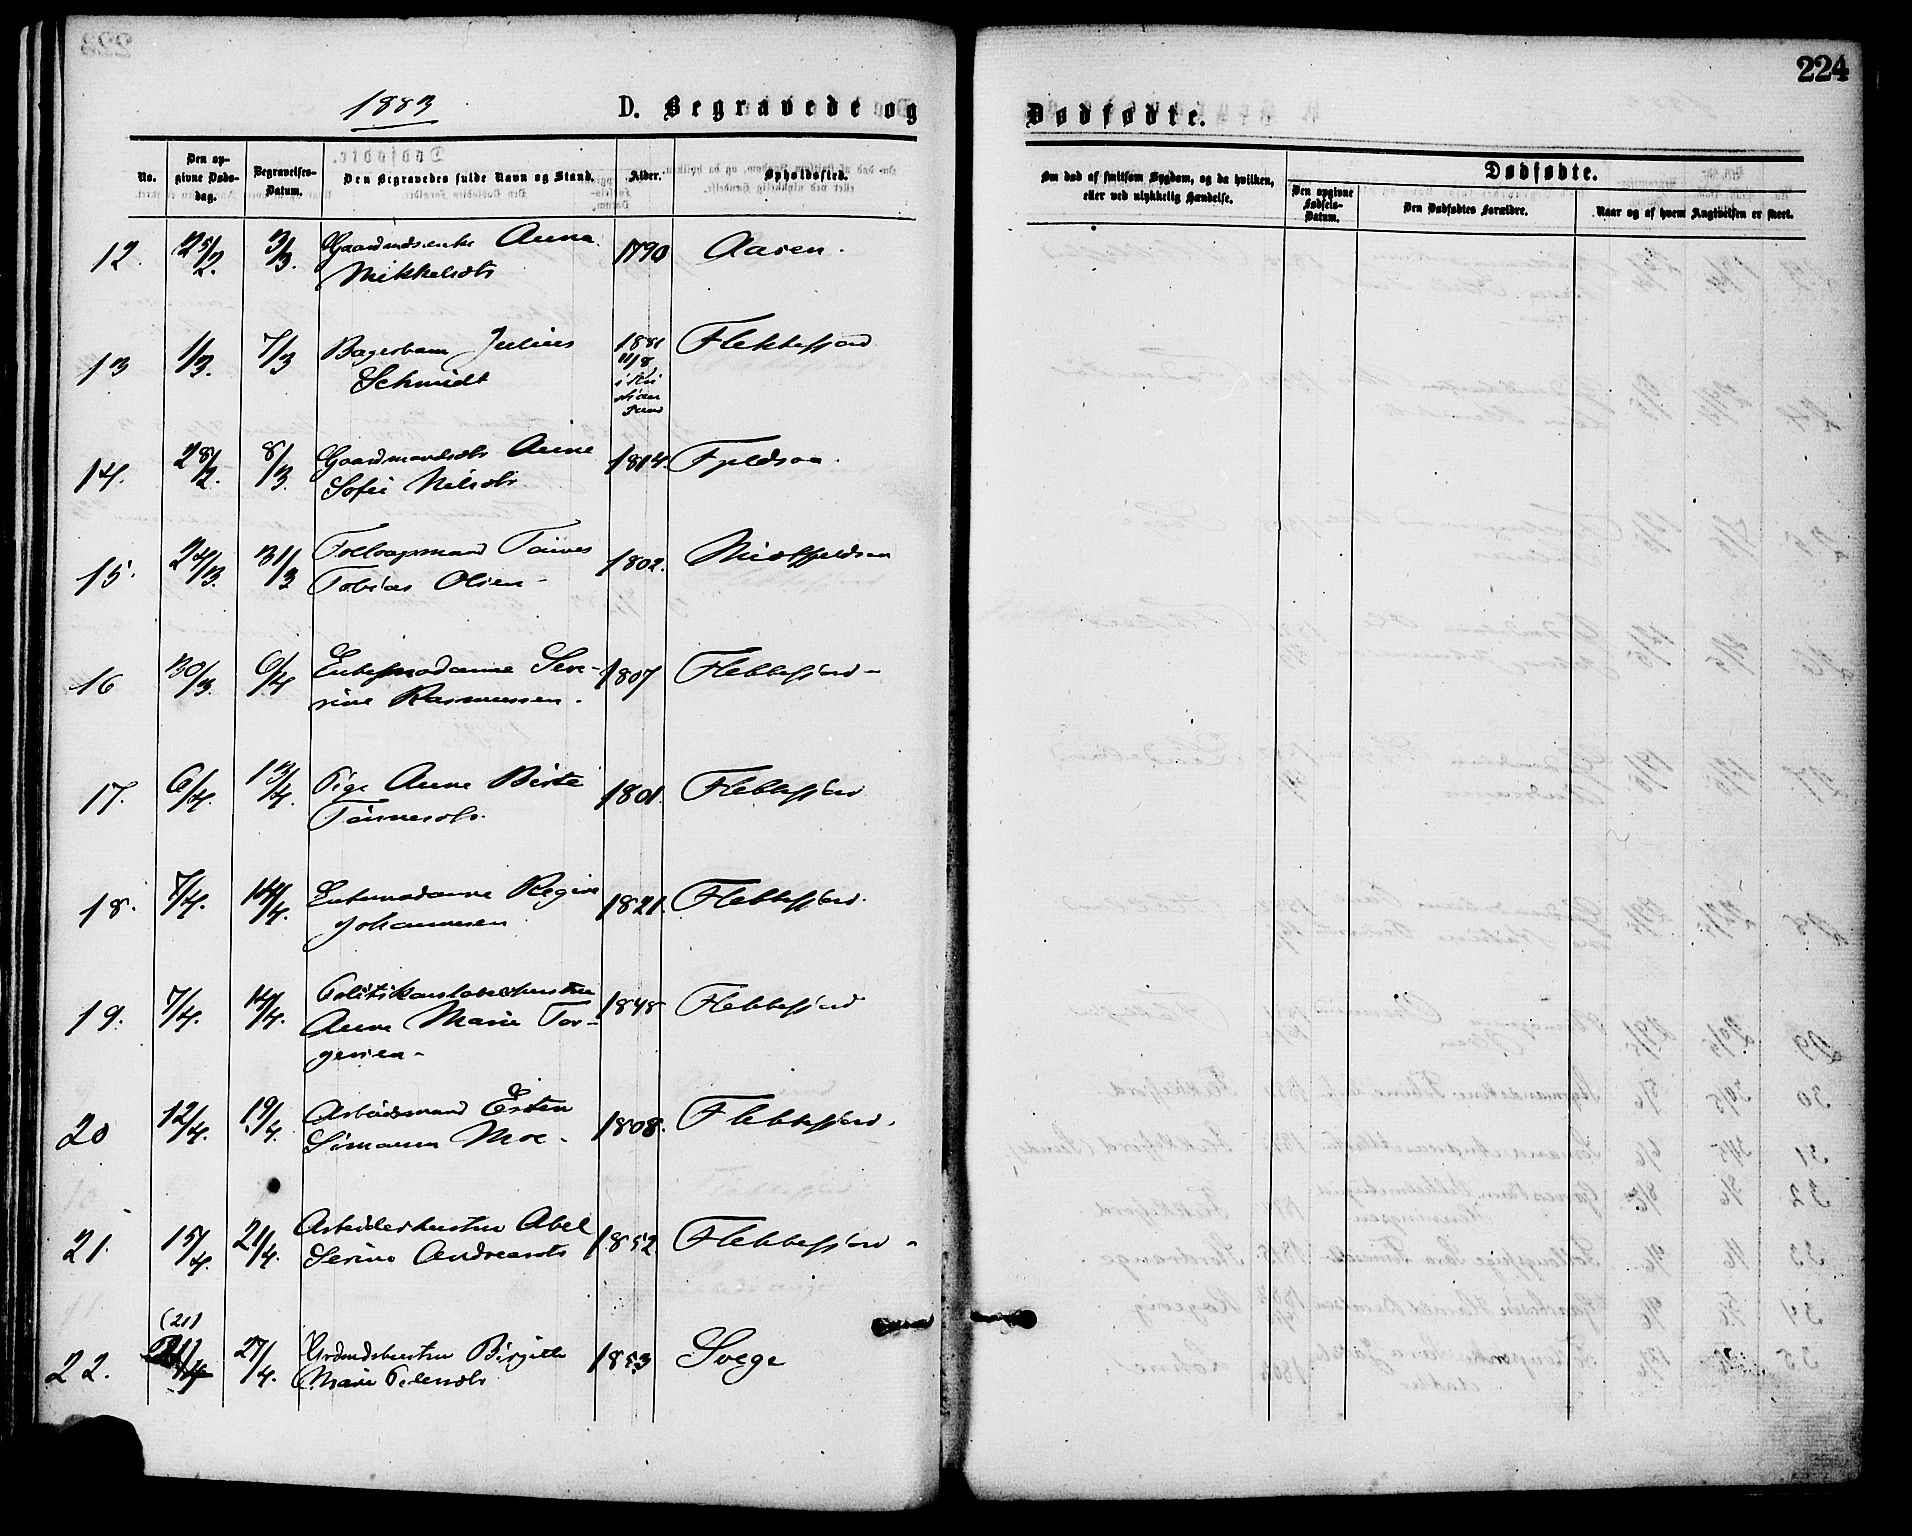 224
1883
D. Begravede og
Dødfødte.
No.
Den op-
givne Døds-
dag.
Begravelses-
Datum.
Den Begravedes fulde Navn og Stand.
Alder.
Opholdssted.
Om død af smitsom Sygdom, og da hvilken,
eller ved ulykkelig Hændelse.
Dødfødte.
Den opgivne
Fødsels-
Datum.
Den Dødfødtes Forældre.
Naar og af hvem Angivelsen er skeet.
12. 25/2. 3/3. Gaardmdsenke Anna 1790 Aasen.
Mikkelsdtr
13 1/3. 7/3 Bagerbarn Julius 1881 Flekkefjord
Schmidt 11/8
i Kri
stian
sund
14. 28/2. 8/3. Gaardmandsdtr Anne 1814.
Sofie Nilsdtr
15. 24/3. 31/3 Tønnes 1802.
Tobias Olsen -
16 30/3. 6/4 Enkemadame Seve- 1807 Flekkefjord -
rine Rasmussen.
17. 6/4. 13/4. Pige Anne Birte 1801. Flekkefjord
Tønnesdtr.
18. 7/4. 14/4. Enkemadame Regine 1821. Flekkefjord.
Johannesen
19. 7/4. 14/4. Politikonstabelhustru 1848 Flekkefjord
Anne Marie Tor-
gersen -
20 12/4. 19/4. Arbeidsmand Esten 1808. Flekkefjord.
Simonsen Moe -
21. 15/4. 21/4. Arbeiderhustru Abel 1852 Flekkefjord -
Serine Andreasdtr
(21)
22. 21/4 27/4. Grdmdshustru Birgitte 1853 Svege
Marie Pedersdtr